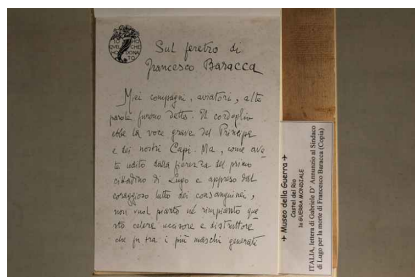 Sul feretro di
Francesco Baracca
Miei compagni, aviatore, alte
parole furono dette. Il cordoglio
ebbe la voce grave del Principe
e dei nostri Capi. Ma, come ave
te udito dalla fierezza del primo
cittadino di Lugo e appreso dal
coraggioso lutto dei consanguinei,
non vuol pianto né rimpianto que
sto celere uccisore e distruttore
che fu tra i più maschi generato
+ Museo della Guerra +
Castel del Rio
la GUERRA MONDIALE
ITALIA, lettera di Gabriele D' Annunzio al Sindaco
di Lugo per la morte di Francesco Baracca (Copia)